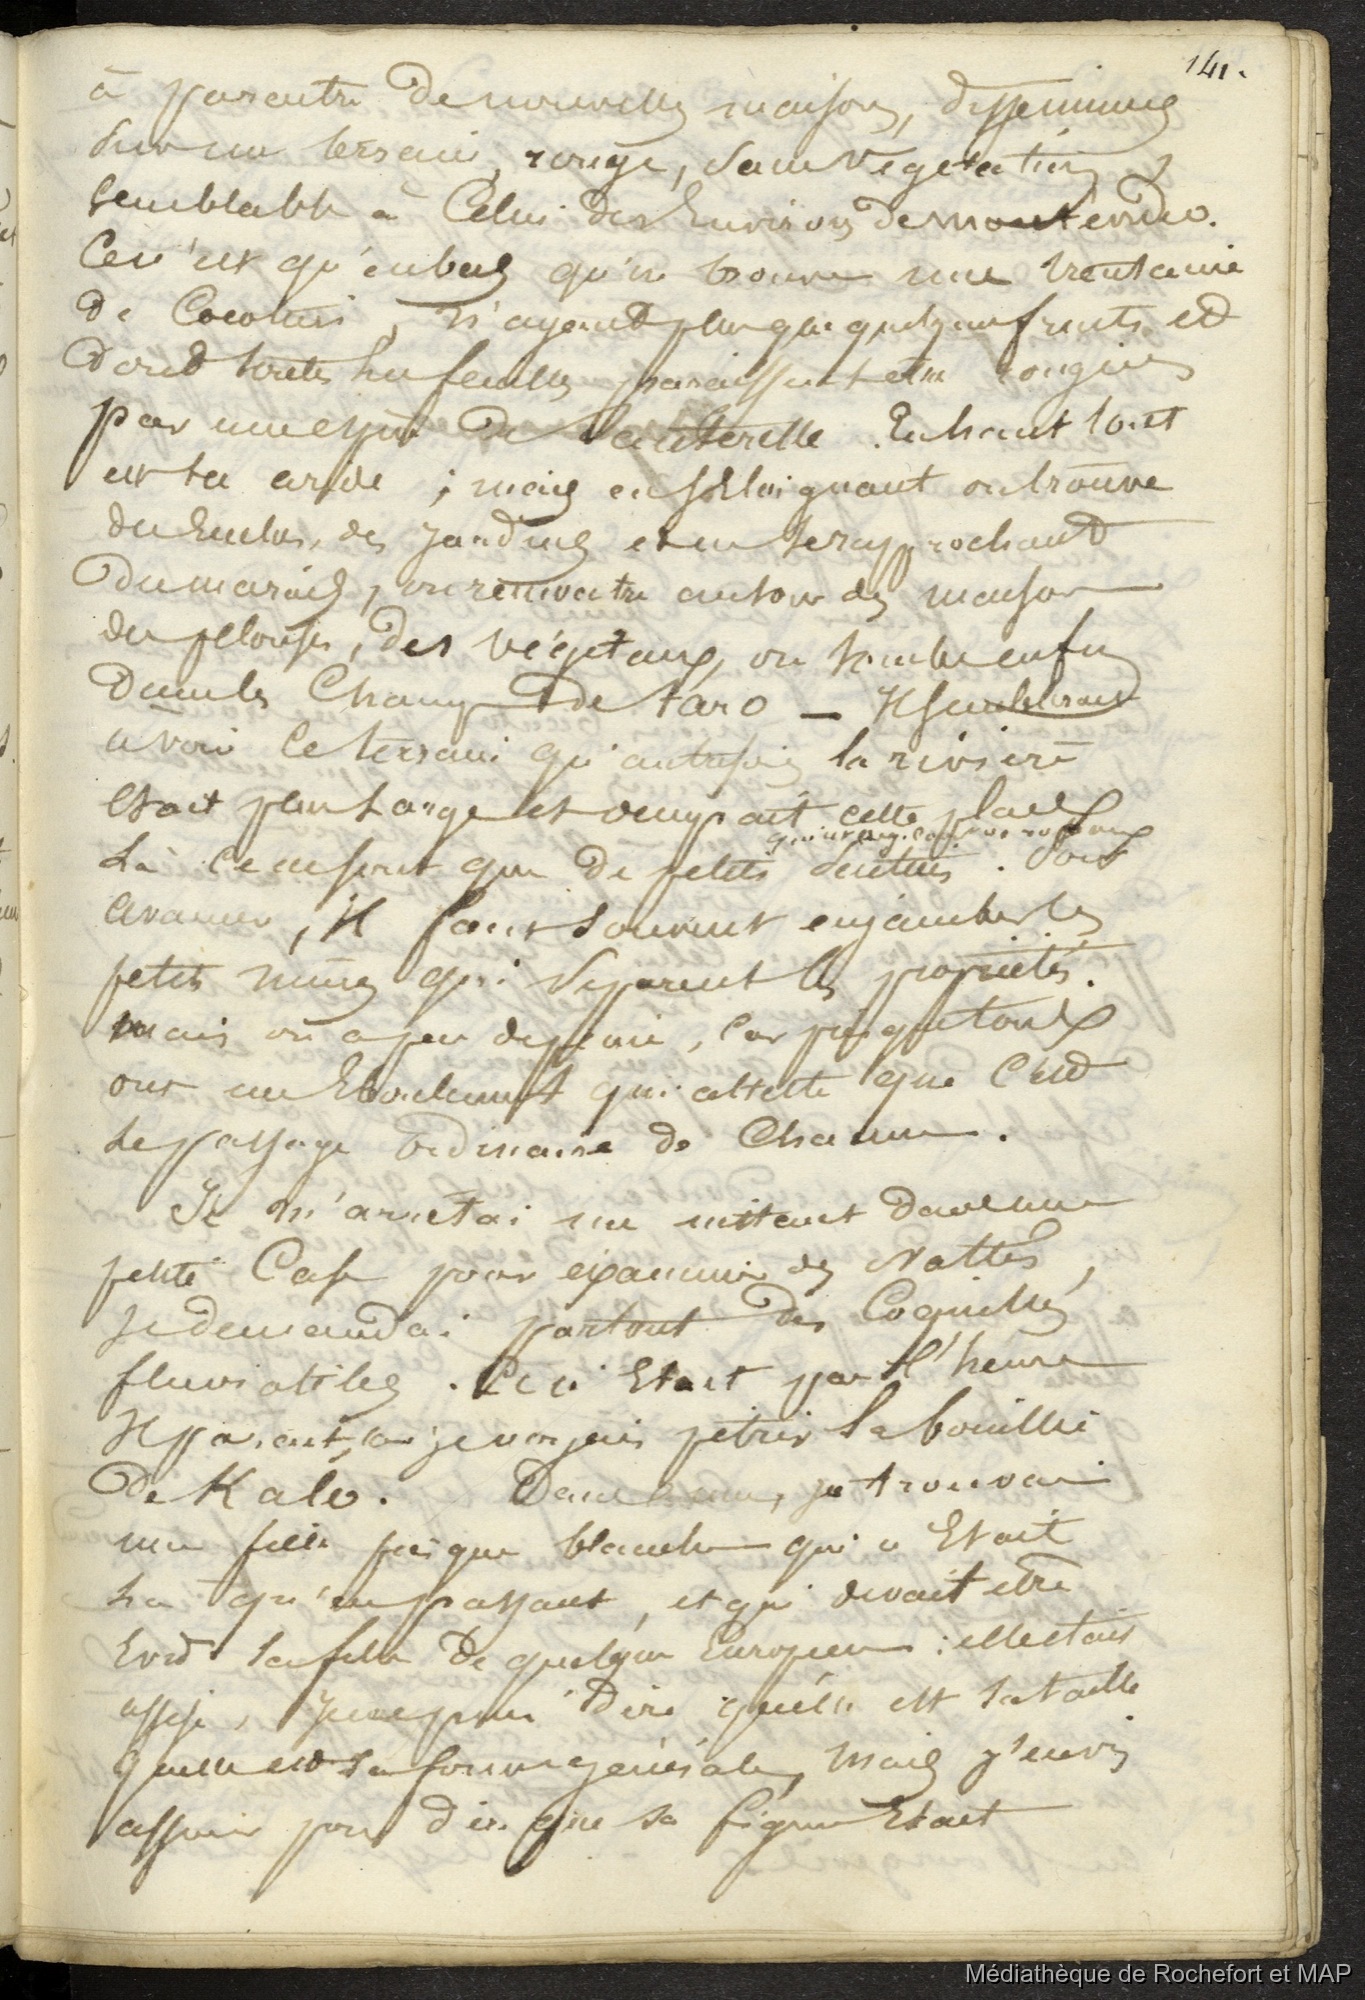 141.
à paraitre de nouvelles maisons, disséminées
sur un terrain, rouge, sans végétation,
semblable à Celui des Environs de montevideo.
Ce n'est qu'en bas qu'on trouve une trentaine
de Cocotiers, n'ayant plus que quelques fruits et
dont toutes les feuilles paraissent être rongées
par une espèce de Sauterelle. En haut tout
est sec aride ; mais en s'éloignant on trouve
des Enclos, des jardins et en se rapprochant
du marais, on rencontre autour des maisons
des pelouses, des végétaux, on tombe enfin
dans les Champs de taro — Il semblerait
à voir ce terrain qu'autrefois la rivière
Etait plus large et occupait cette place
Là ce ne sont que de petits sentiers. Pour
avancer, Il faut souvent enjamber les
petits murs qui séparent les propriétés.
mais on a peu de peine, car presque tous
ont un Eboulement qui atteste que c'est
le passage ordinaire de Chacun.
Je m'arrêtai un instant dans une
petite Case pour examiner des Nattes,
je demandai partout des Coquilles
fluviatiles. C'était par l'heure
Il parait, car je voyais pétrir la bouillie
de Kalo. Dans l'une, je trouvai
une fille presque blanche qui n'Etait
là qu'en passant, et qui devait être
la fille de quelque Européen : elle était
assise, je ne puis dire quelle est sa taille
quelle est sa forme générale, mais j'en vis
assez pour dire que sa figure Etait
Médiathèque de Rochefort et MAP